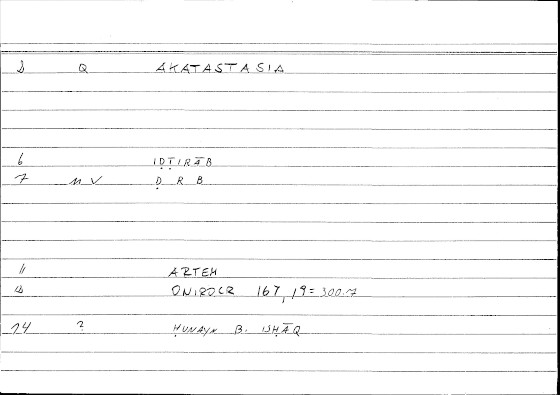 Q AKATASTASIA
6 IḌṬIRĀB
7 MV Ḍ R B
11 ARTEM
ONIROCR 167,19=300.7
14 ? ḤUNAYN B. ISḤĀQ